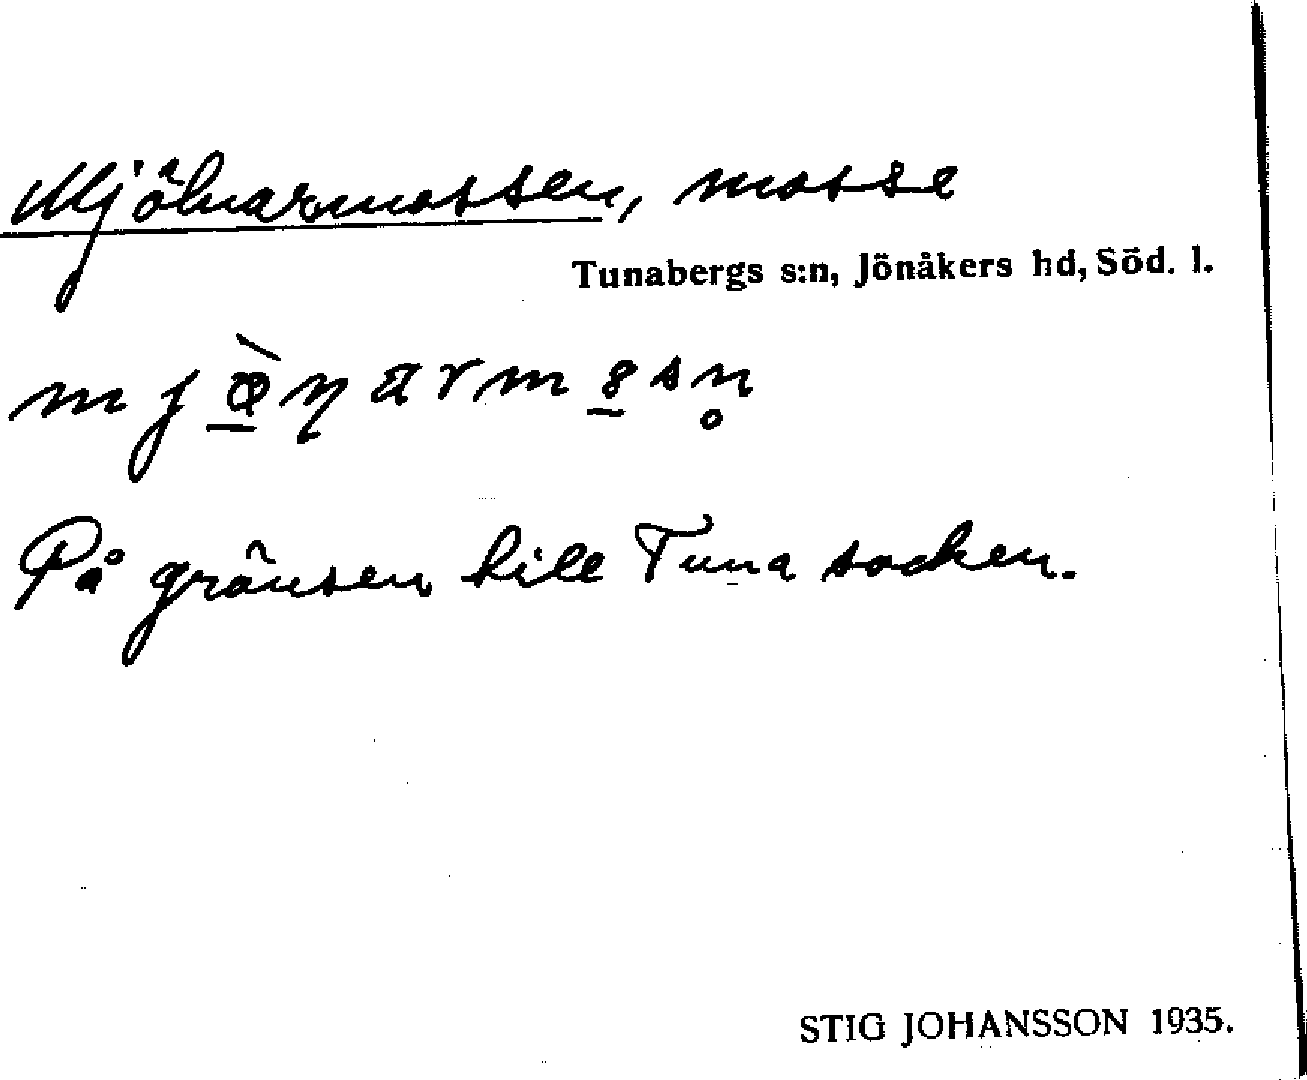 Mjölnarmossen, mosse
Tunabergs s:n, Jönåkers hd, Söd. l.
På gränsen till Tuna socken.
STIG JOHANSSON 1935.